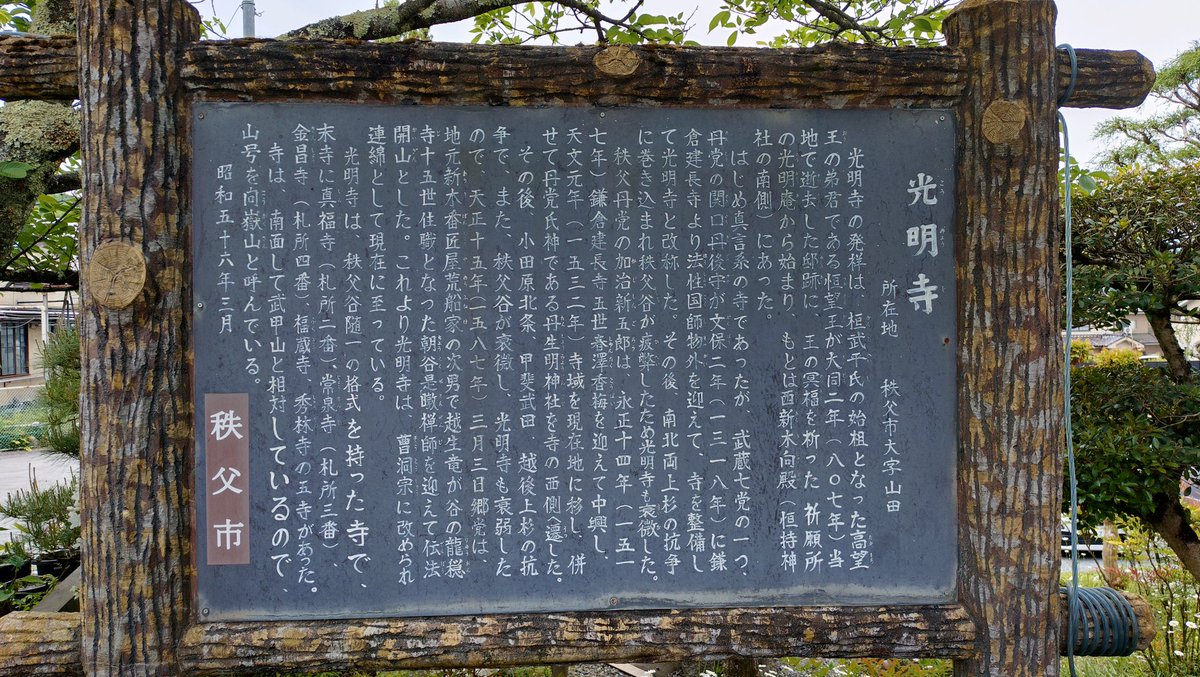 光明寺
所在地　秩父市大字山田
光明寺の発祥は、桓武平氏の始祖となった高望
王の弟君である恒望王が大同二年（八〇七年）当
地で逝去した邸跡に、王の冥福を祈った祈願所
の光明庵から始まり、もとは西新木向殿（恒持神
社の南側）にあった。
はじめ真言系の寺であったが、武蔵七党の一つ、
丹党の関口丹後守が文保二年（一三一八年）に鎌
倉建長寺より法柱国師物外を迎えて、寺を整備し
て光明寺と改称した。その後、南北両上杉の抗争
に巻き込まれ秩父谷が疲弊したため光明寺も衰微した。
秩父丹党の加治新五郎は、永正十四年（一五一
七年）鎌倉建長寺五世春澤香梅を迎えて中興し、
天文元年（一五三二年）寺域を現在地に移し、併
せて丹党氏神である丹生明神社を寺の西側へ遷した。
その後、小田原北条、甲斐武田、越後上杉の抗
争で、また、秩父谷が衰微し、光明寺も衰弱した
ので、天正十五年（一五八七年）三月三日郷党は、
地元新木番匠屋荒船家の次男で越生竜が谷の龍穏
寺十五世住職となった朝谷是職禅師を迎えて伝法
開山とした。これより光明寺は、曹洞宗に改められ
連綿として現在に至っている。
光明寺は、秩父谷随一の格式を持った寺で、
末寺に真福寺（札所二番）、常泉寺（札所三番）、
金昌寺（札所四番）、福蔵寺、秀林寺の五寺があった。
寺は、南面して武甲山と相対しているので、
山号を向嶽山と呼んでいる。
昭和五十六年三月
秩父市